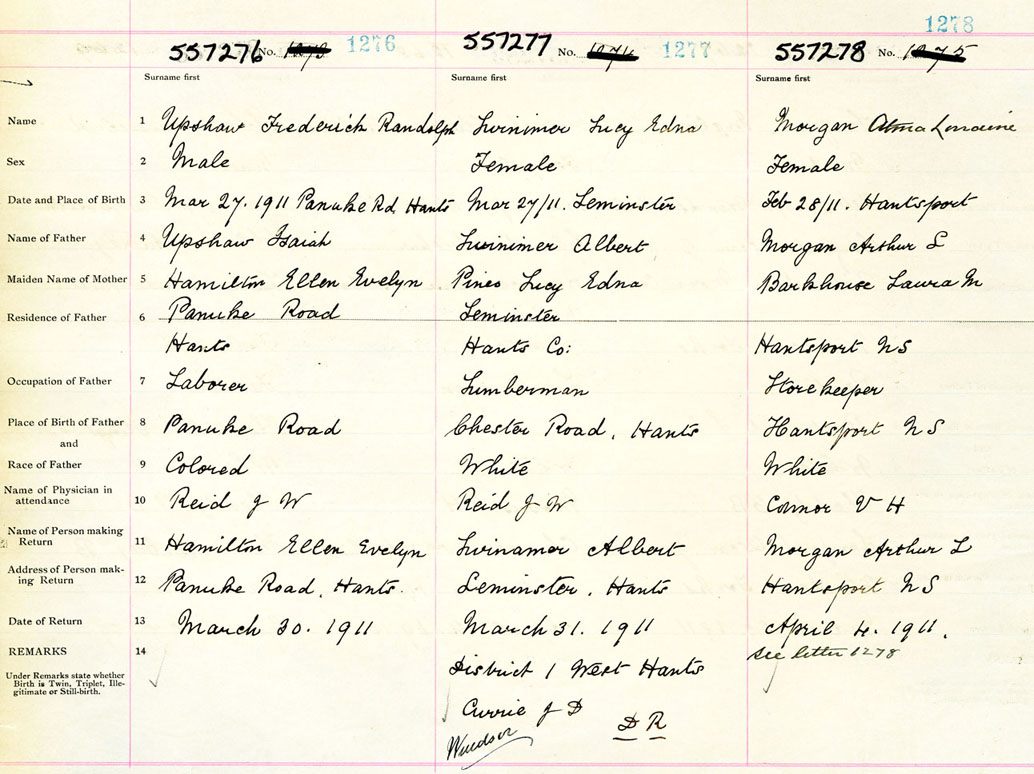 1278
557276 No. 1276
557277 No. 1277
557278 No. 1275
Surname first Surname first Surname first
Name 1 Upshaw Frederick Randolph Swinimer Lucy Edna Morgan Lorraine
Sex 2 Male Female Female
Date and Place of Birth 3 Mar 27. 1911 Panuke Rd Hants Mar 27/11. Leminster Feb 28/11. Hantsport
Name of Father 4 Upshaw Isaiah Swinimer Albert Morgan Arthur L
Maiden Name of Mother 5 Hamilton Ellen Evelyn Pineo Lucy Edna Barkhouse Laura M
Residence of Father 6 Panuke Road Leminster
Hants Hants Co: Hantsport NS
Occupation of Father 7 Laborer Lumberman Storekeeper
Place of Birth of Father 8 Panuke Road Chester Road, Hants Hantsport NS
and
Race of Father 9 Colored White White
Name of Physician in
attendance 10 Reid J W Reid J W Connor V H
Name of Person making
Return 11 Hamilton Ellen Evelyn Swinamer Albert Morgan Arthur L
Address of Person mak-
ing Return 12 Panuke Road, Hants. Leminster, Hants Hantsport NS
Date of Return 13 March 30. 1911 March 31. 1911 April 4. 1911.
REMARKS 14 See letter 1278
Under Remarks state whether
Birth is Twin, Triplet, Ille-
gitimate or Still-birth.
District 1 West Hants
Currie J D D R
Windsor